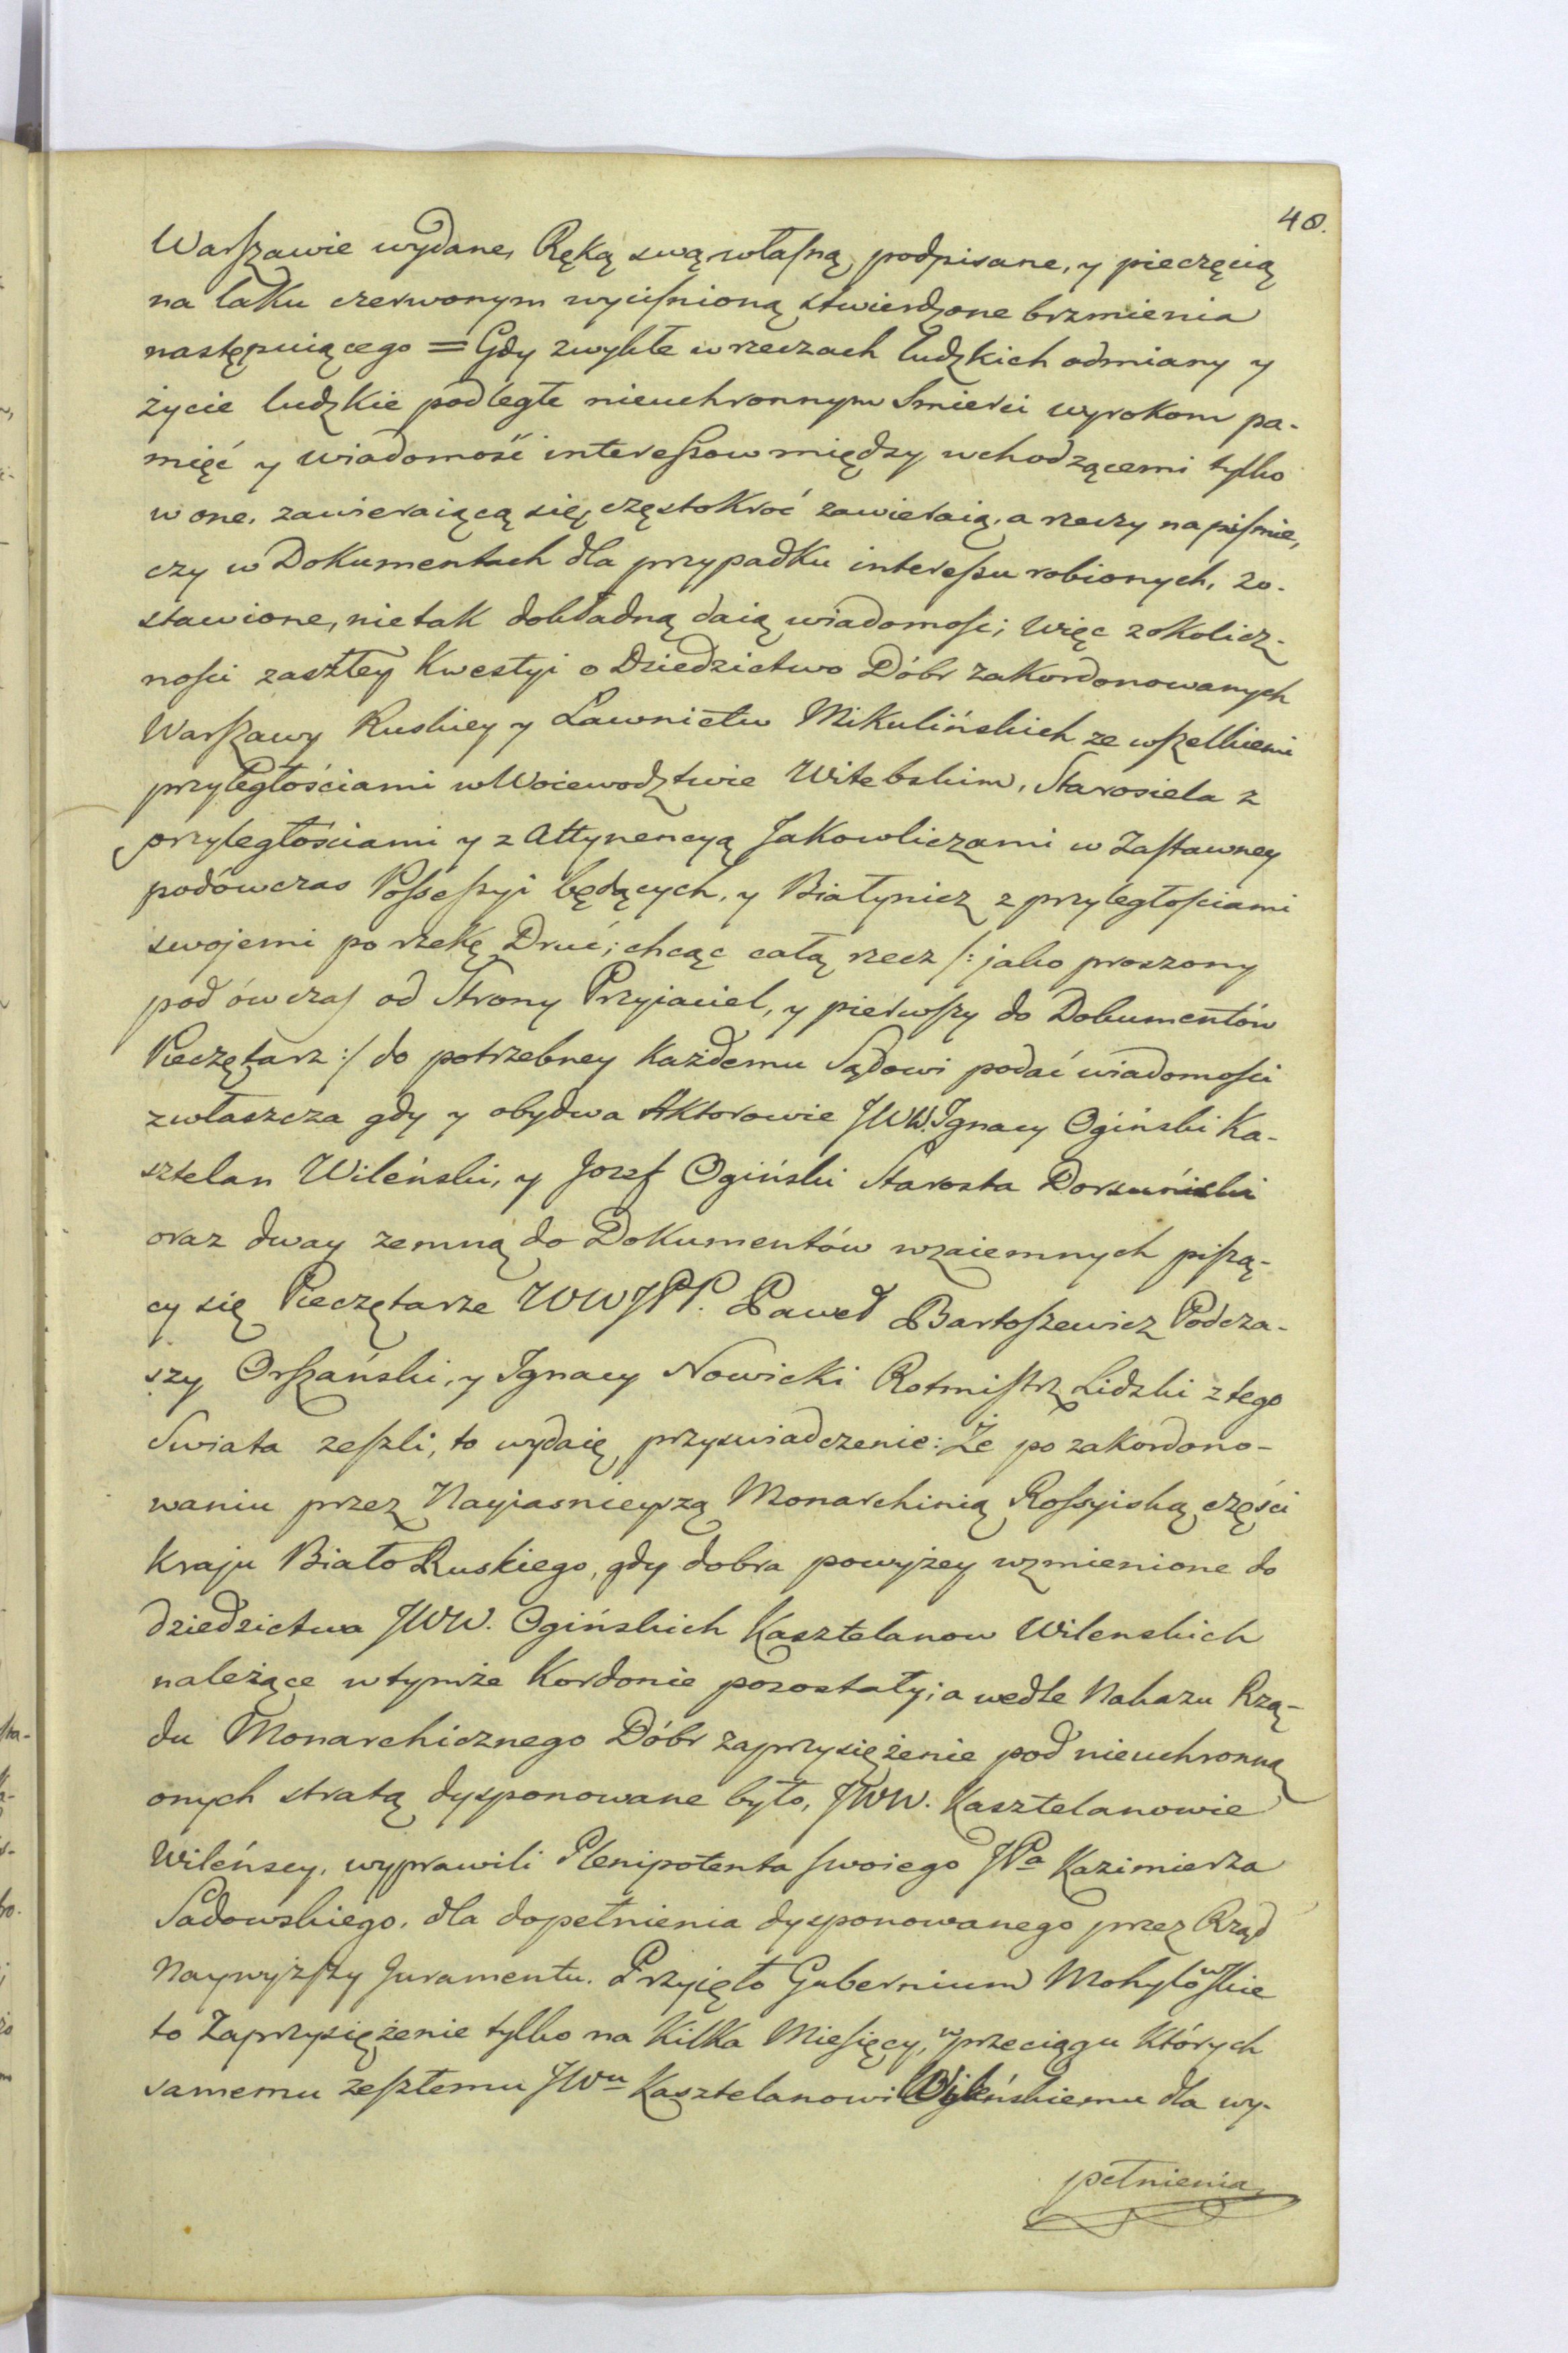 48.
Warszawie wydane, Ręką swą własną podpisane, y pieczęcią
na laku czerwonym wyciśnioną stwierdzone brzmienia
następuiącego = Gdy zwykłe w rzeczach ludzkich odmiany y
życie ludzkie podległe nieuchronnym Smierci wyrokom pa-
mięć y wiadomość interessow między wchodzącemi tylko
w one, zawieraiącą się, częstokroć zawieraią, a rzeczy na piśmie,
czy w Dokumentach dla przypadku interessu robionych, zo-
stawione, nie tak dokładną daią wiadomość; więc z okolicz-
ności zaszłey Kwestyi o Dziedzictwo Dóbr zakordonowanych
Warszawy Ruskiey y Ławnictw Mikulińskich ze wszelkiemi
przyległościami w Woiewodztwie Witebskim, Starosiela z
przyległościami y z Attynencyą Jakowliczami w Zastawney
podówczas Possessyi będących, y Białynicz z przyległościami
swojemi po rzekę Druć; chcąc całą rzecz /: jako proszony
pod ów czas od Strony Przyjaciel, y pierwszy do Dokumentów
Pieczętarz :/ do potrzebney każdemu Sądowi podać wiadomości
zwłaszcza gdy y obydwa Aktorowie JWW. Ignacy Ogiński Ka-
sztelan Wileński, y Jozef Ogiński Starosta Dorsuniski
oraz dway zemną do Dokumentów wzaiemnych piszą-
cy się Pieczętarze WWJPP. Paweł Bartoszewicz Podcza-
szy Orszański, y Ignacy Nowicki Rotmistrz Lidzki z tego
Swiata zeszli, to wydaię przyswiadczenie: Że po zakordono-
waniu przez Nayiasnieyszą Monarchinią Rossyiską części
Kraju Biało Ruskiego, gdy dobra powyżey wzmienione do
dziedzictwa JWW. Ogińskich Kasztelanow Wilenskich
należące w tymże Kordonie pozostały; a wedle Nakazu Rzą-
du Monarchicznego Dóbr zaprzysiężenie pod nieuchronną
onych stratą dysponowane było, JWW. Kasztelanowie
Wileńscy, wyprawili Plenipotenta swoiego JPa Kazimierza
Sadowskiego, dla dopełnienia dysponowanego przez Rząd
Naywyższy Juramentu. Przyięło Gubernium Mohylowskie
to Zaprzysiężenie tylko na Kilka Miesięcy, w przeciągu Których
samemu zeszłemu JWu Kasztelanowi Wileńskiemu dla wy-
pełnienia